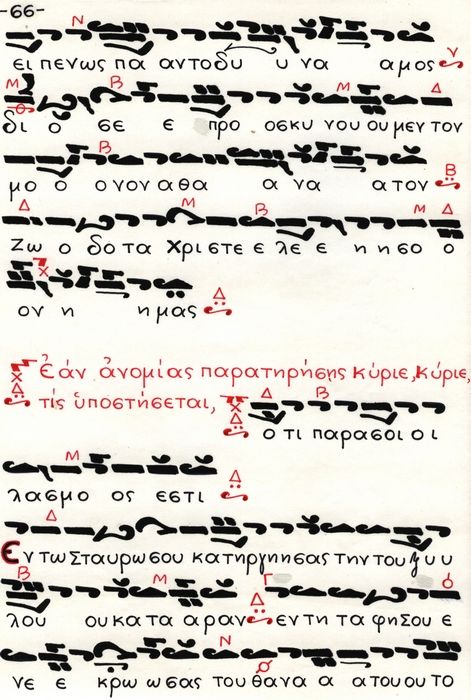 -66-
ει πενως πα αντοδυ υ να αμος
δι ο σε ε προ οσκυ νου ου μεν τον
μο ο ονον αθα α να ατον
Ζω ο δο τα Χρι στε ε λε ε η η σο ο
ον η η μας
Ἐὰν ἀνομίας παρατηρήσης κύριε, κύριε,
τίς ὑποστήσεται,
ο τι παρασοι οι
λασμο ος εστι
Εν τω Σταυρω σου κατηργη η σας την του ξυ υ
λου ου κατα αραν εν τη τα φη Σου ε
νε ε κρω ω σας του θανα α ατου ου το